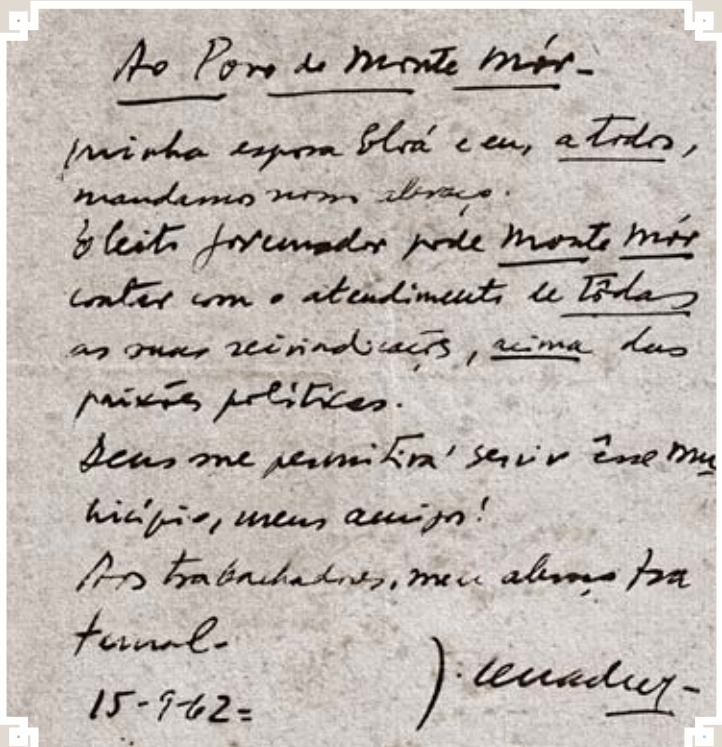 Ao Povo de Monte Mór-
minha esposa Eloá e eu, a todos,
mandamos nosso abraço.
Eleito governador pode Monte Mór
contar com o atendimento de tôdas
as suas reivindicações, acima das
paixões políticas.
Deus me permitirá servir êsse mu
nicípio, meus amigos!
Aos trabalhadores, meu abraço fra
ternal-
15-9-62=
J.